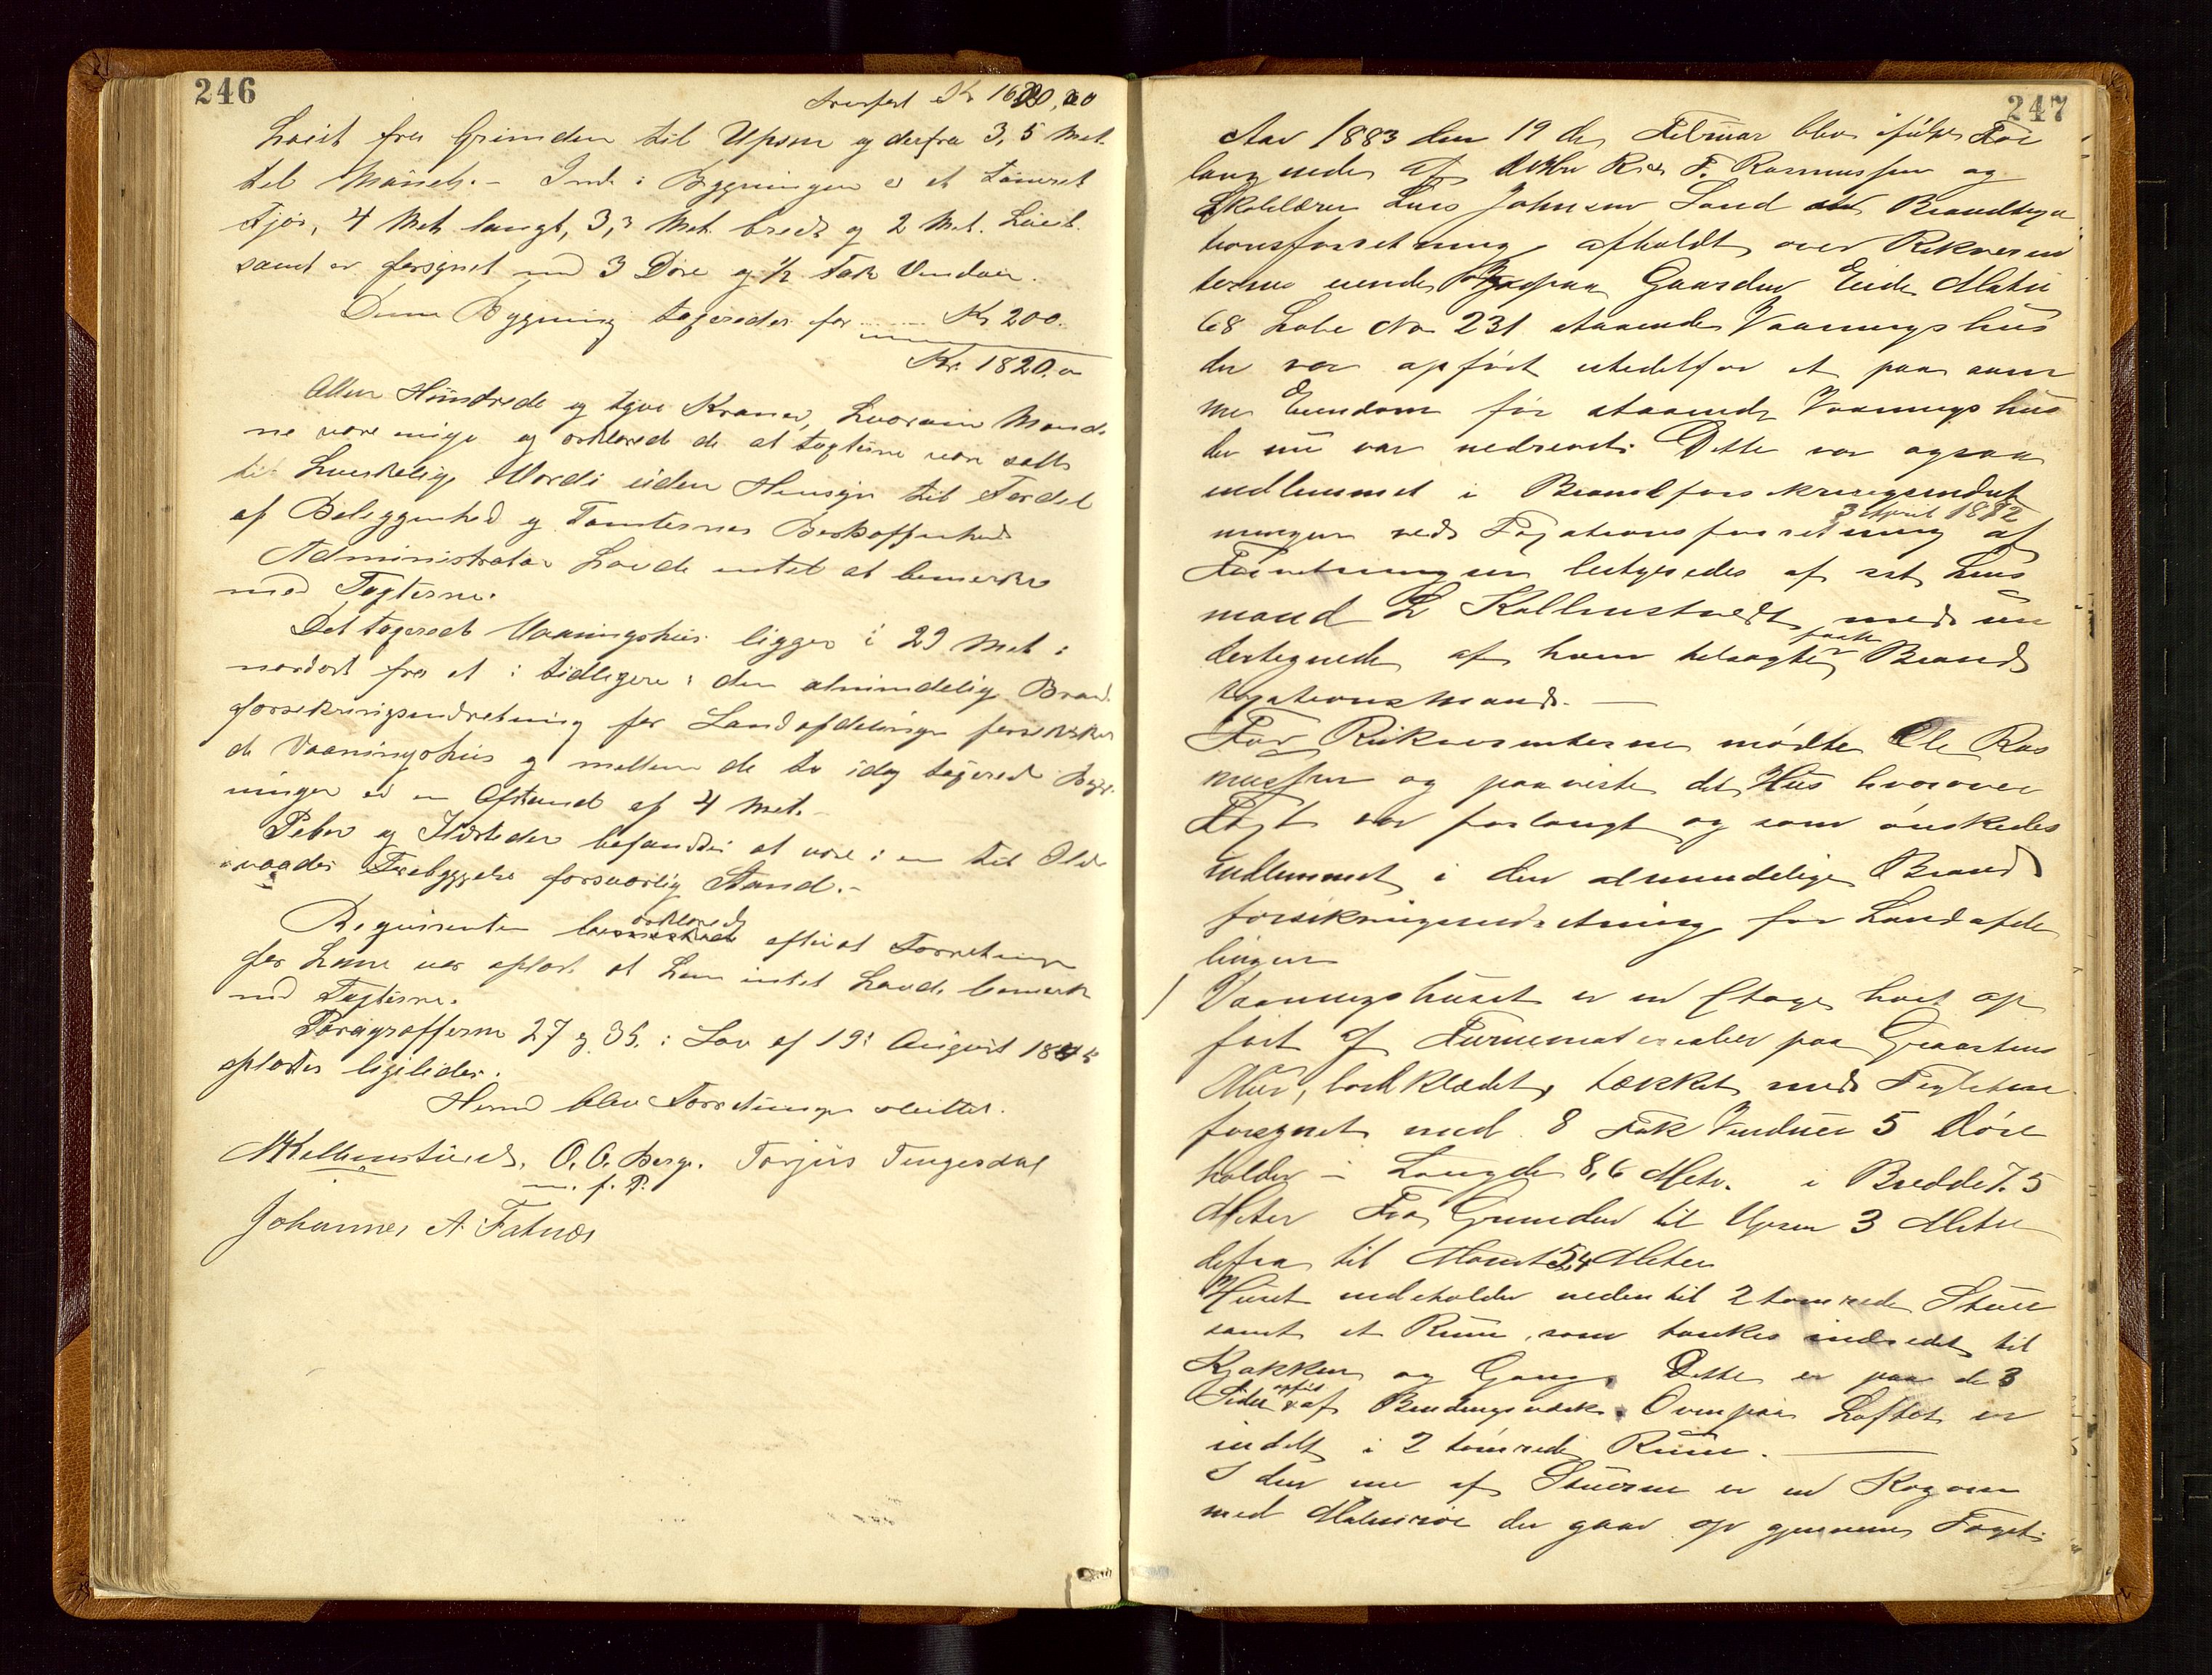 246
Overført Kr 1620,00
høit fra Grunden til Upsen og derfra 3,5 Met.
til Mønet. – Inde i Bygningen er et tømret
Fjøs, 4 Met. langt, 3,3 Met. bredt og 2 Met. høit.
samt er forsynet med 3 Døre og 1/2 Fak Vinduer.
Denne Bygning taxeredes for ...... Kr 200.
Kr. 1820.00
Atten Hundrede og tyve Kroner, hvorom Mænd-
ne vare enige og erklærede de at Taxterne vare satte
til huuslelige Værdi uden Hensyn til Fordel
af Beliggenhed og Tomternes Beskaffenhed
Administrator havde intet at bemærke
mod Taxterne.
Det taxerede Vaaningshus ligger i 29 Met. i
nordost fra et i tidligere i den almindelige Brand-
forsikringsindretning for Landafdelingen forsikre-
de Vaaningshus og mellem de to idag taxerede Byg-
ninger er en Afstand af 4 Met. –
Peber og Ildsteder befandtes at være i en til Ilds-
vaades Forebyggelse forsvarlig Stand. –
erklærede
Reqvirenten efterat Forretningen
for ham var oplæst at han intet havde bemærke
mod Taxterne.
Paragrafferne 27 og 35. i Lov af 19: August 1845
oplæstes ligeledes.
Hermed blev Forretningen sluttet.
Kallenstvedt, O. O. Berge. Torjus Tengesdal
m. f. P.
Johannes A. Fatnes
247
Aar 1883 den 19 de Februar blev ifølge For
langende af Ole Rasmussen og
Skolelærer Lars Johnsen Sand Brandtaxa
tionsforretning afholdt over Rekvirin
ternes paa Gaarden Eide Matr
68 Løbe No 231 staaende Vaaningshus
der var opført istedetfor et paa sam
me Eiendom før staaende Vaaningshus
der nu var nedrevet. Dette var ogsaa
indlemmet i Brandforsikringsindret
3 April 1882
ningen ved Taxationsforretning af
Forretningen bestyredes af sat Lens
mand L Kallenstvedt med un
faste
dertegnede af ham tilsagte Brand
taxationsmænd. –
For Rikvirenterne mødte Ole Ras
mussen og paaviste det Hus hvorover
Taxt var forlangt og som ønskedes
indlemmet i den almindelige Brand
forsikringsindretning for Landafde
lingen
1 Vaaningshuset er en Etage høit op
ført af Furumaterialer paa Graastens
Mur, bordklædet, tækket med Teglstene
forsynet med 8 Fak Vinduer 5 Døre
holder i Længde 8,6 Metr. i Bredde 7.5
Meter Fra Grunden til Upsen 3 Meter
defra til Mønet 5,4 Meter
Huset indeholder nedentil 2 tømrede Stuer
samt et Rum, som tænkes indredet til
Kjøkken og Gang. Dette er paa de 3
opført
Sider af Bindingsværk. Ovenpaa Loftet er
indelt i 2 tømrede Rum.
I den ene af Stuerne er en Kogovn
med Malmrør der gaar op gjennem Taget